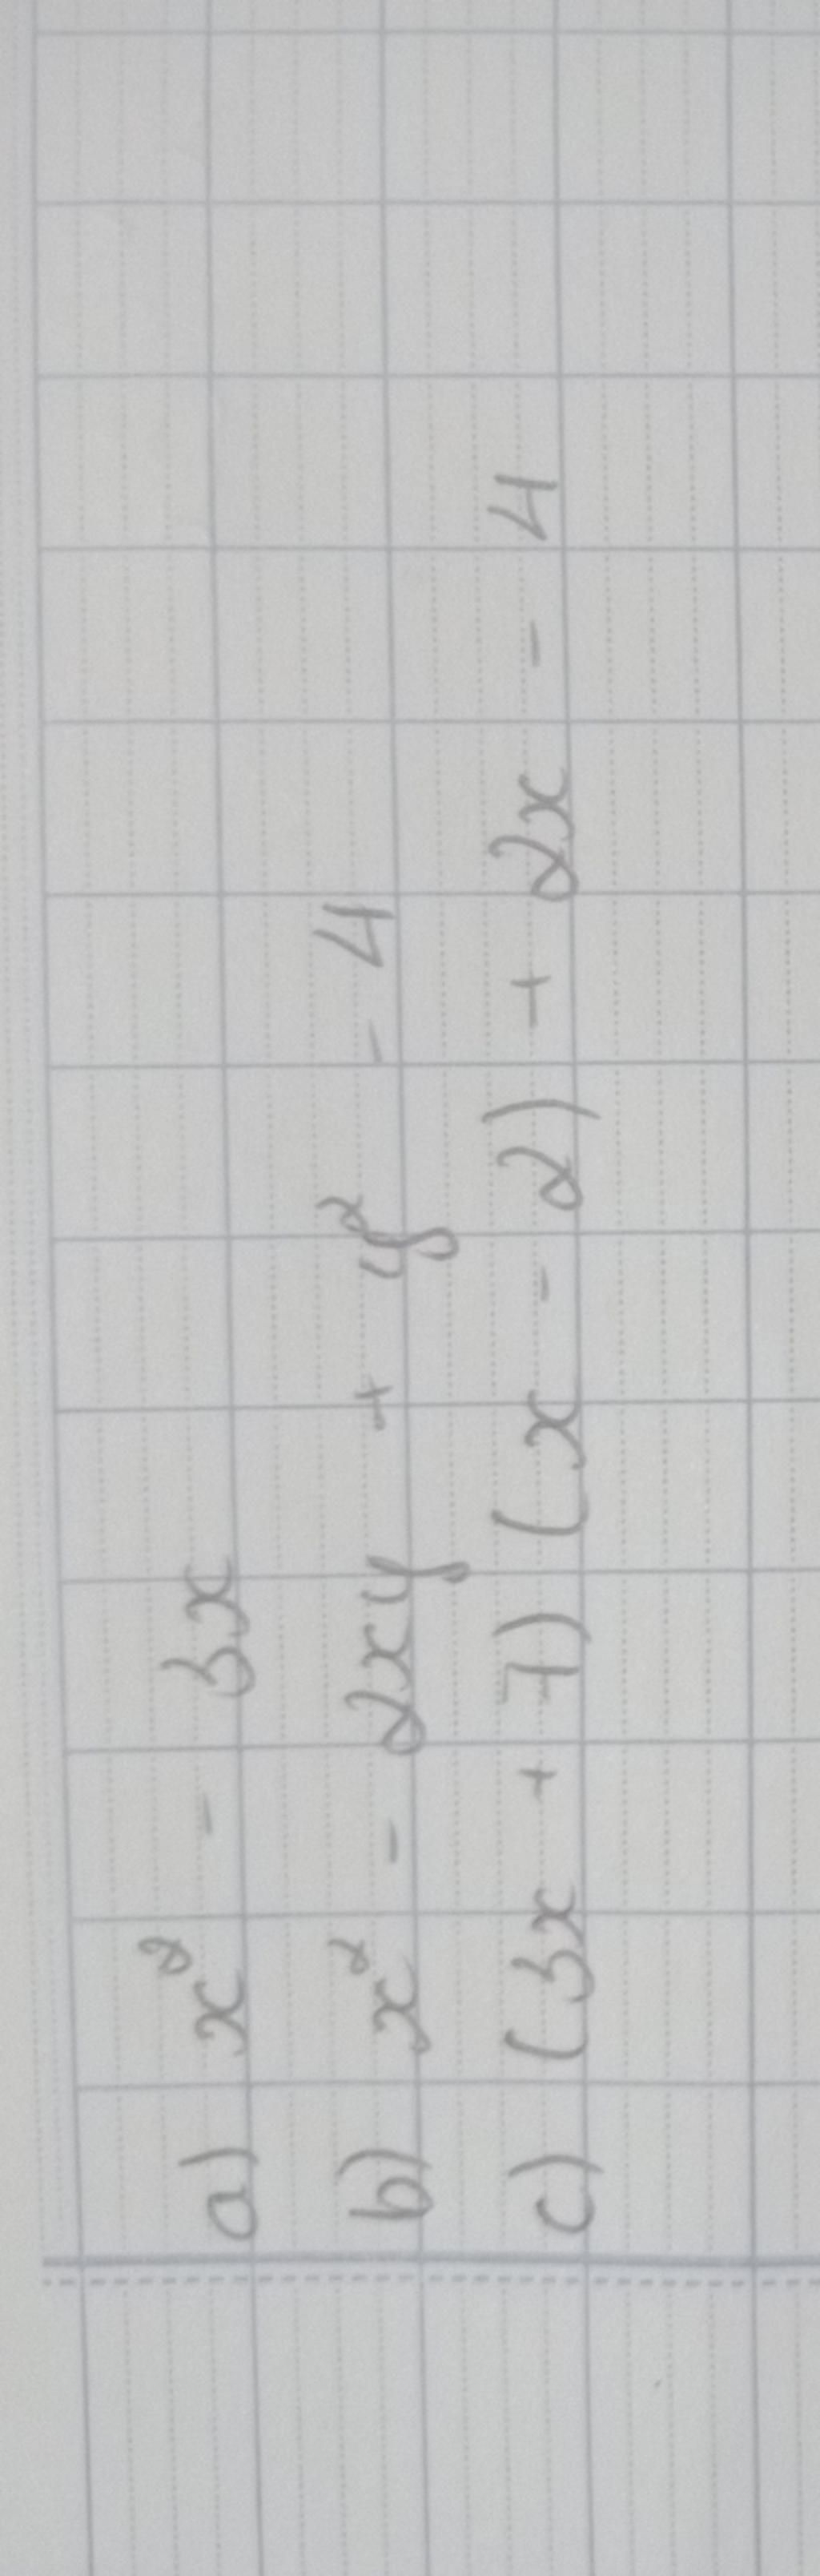 a) x² - 3x
b) x² - 2xy + y² - 4
c) (3x + 7)(x - 2) + 2x - 4